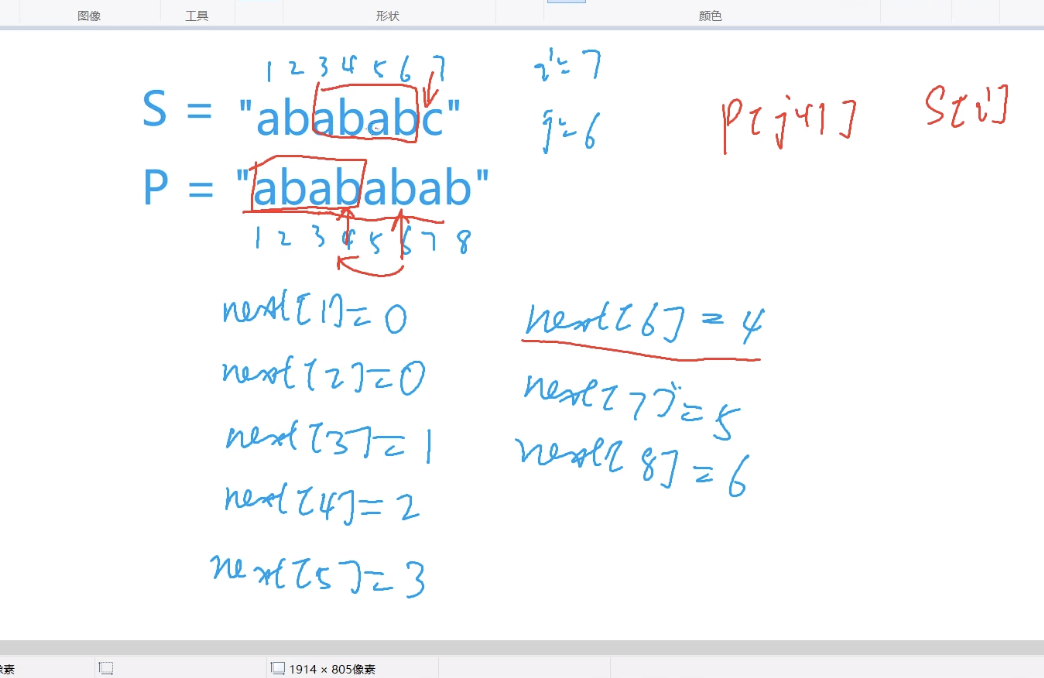 图像 工具 形状 颜色
1 2 3 4 5 6 7
i = 7
S = "abababc"
j = 6
P[j+1] S[i]
P = "abababab"
1 2 3 4 5 6 7 8
next[1] = 0
next[2] = 0
next[3] = 1
next[4] = 2
next[5] = 3
next[6] = 4
next[7] = 5
next[8] = 6
像素 1914 × 805像素